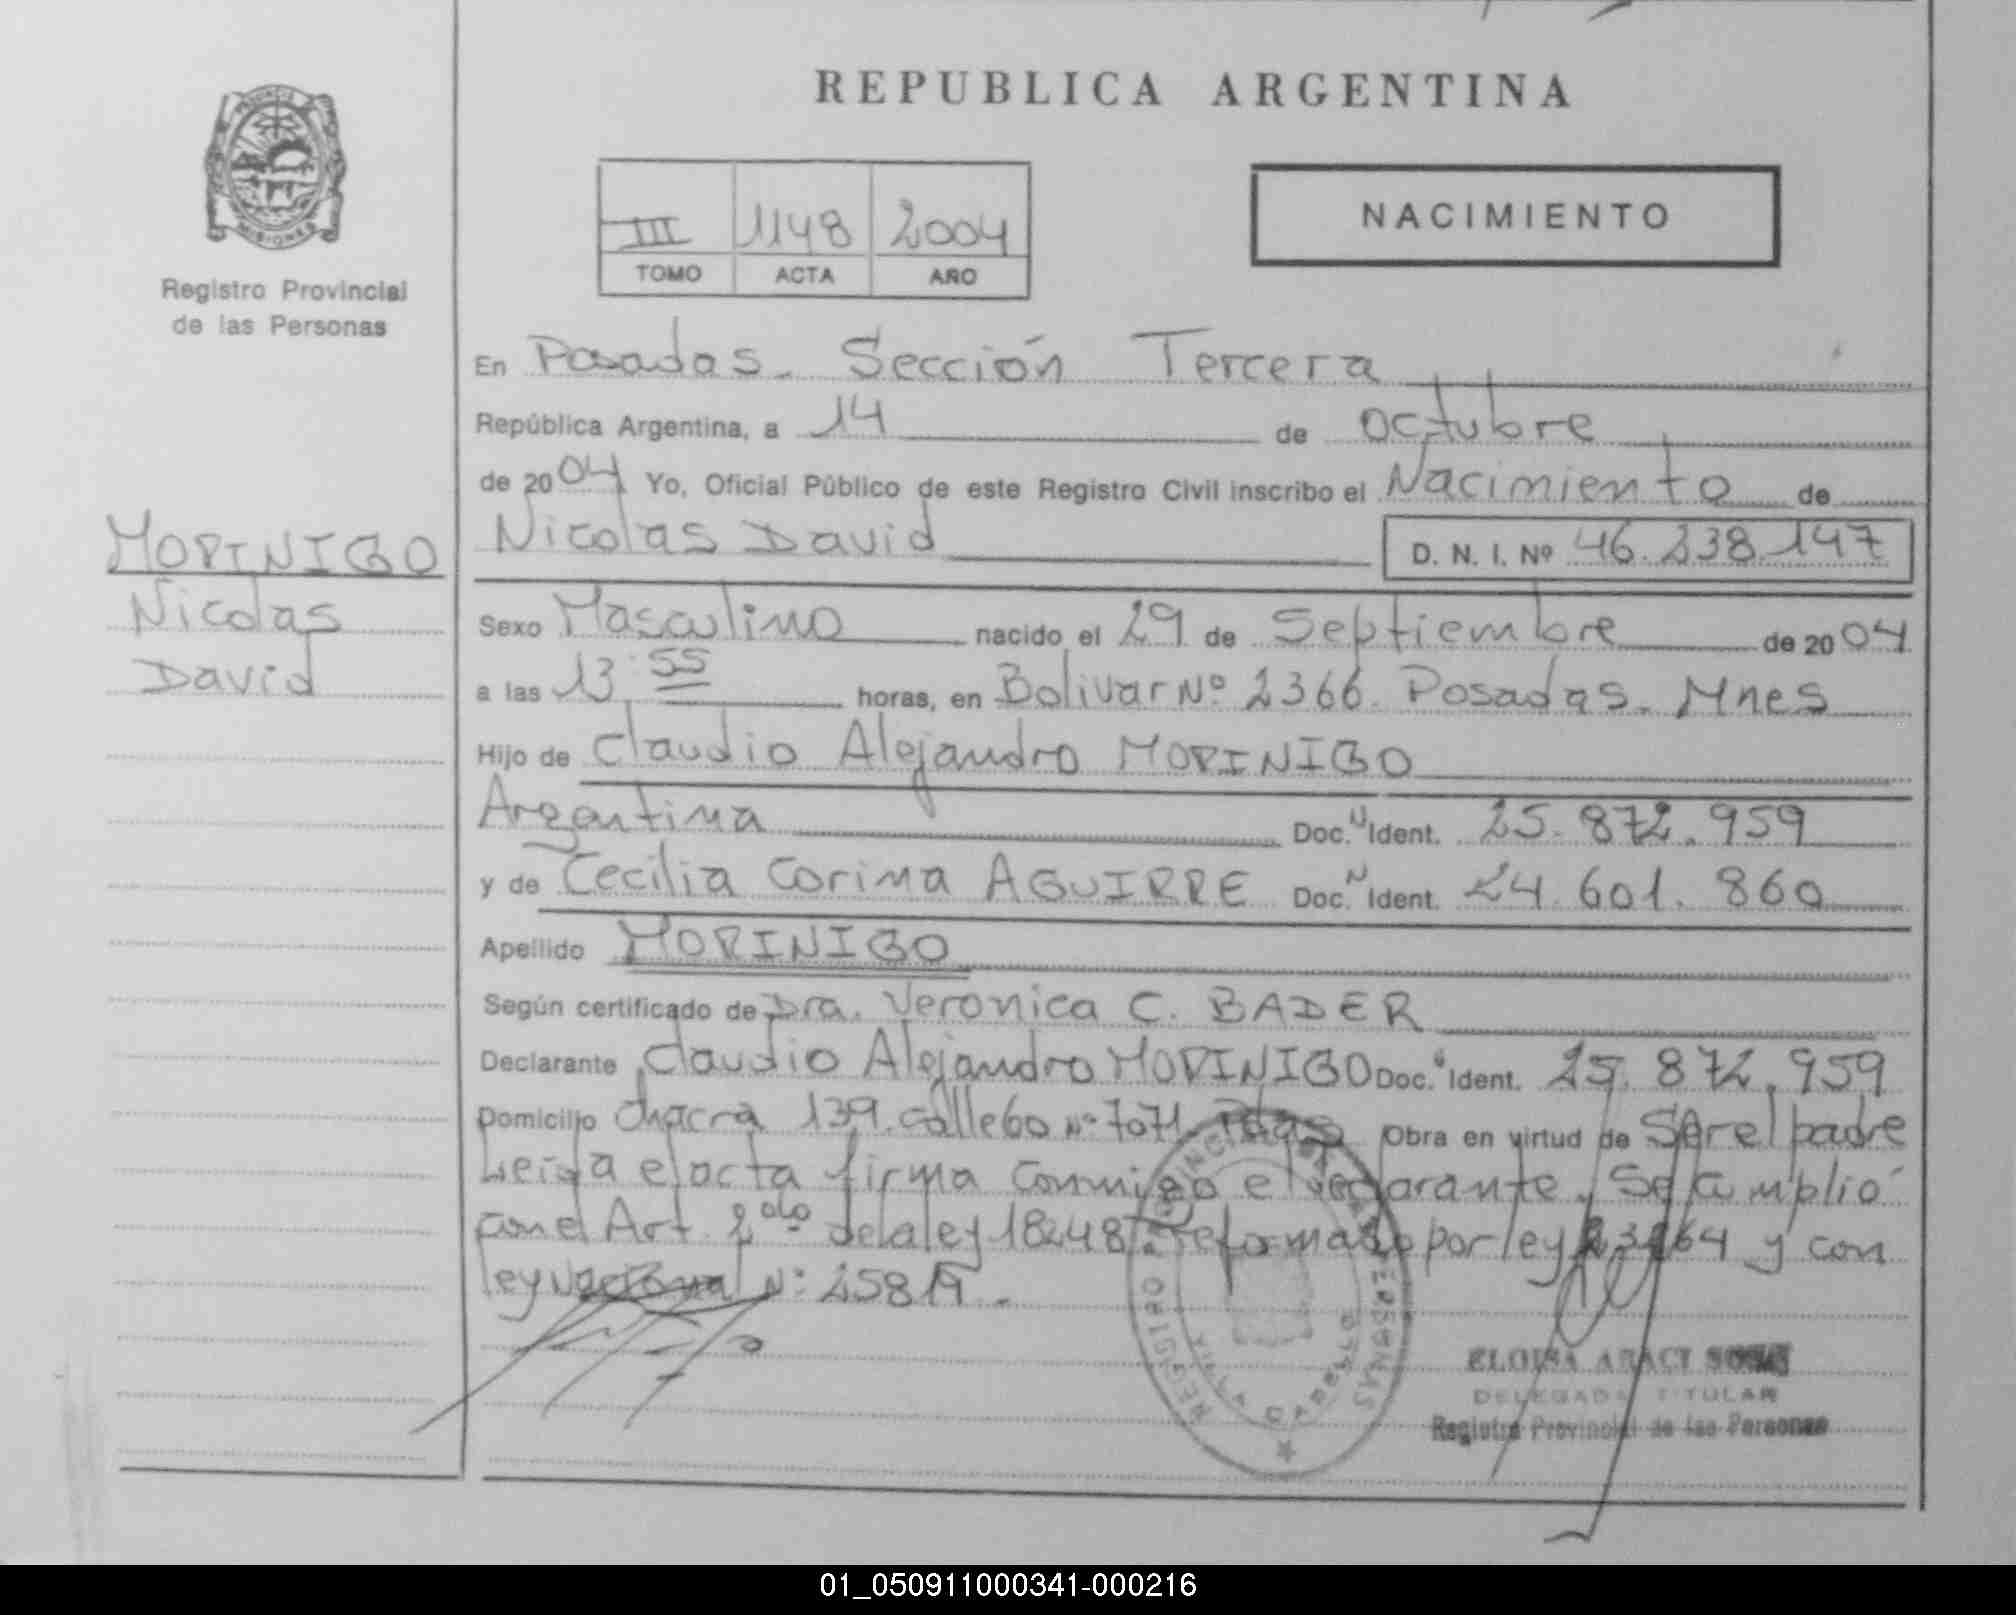 REPUBLICA ARGENTINA
III 1148 2004
TOMO ACTA AÑO
NACIMIENTO
PROVINCIA
MISIONES
Registro Provincial
de las Personas
MORINIGO
Nicolas
David
En Posadas. Sección Tercera
República Argentina, a 14 de octubre
de 2004 Yo, Oficial Público de este Registro Civil inscribo el Nacimiento de
Nicolas David D. N. I. Nº 46.238.147
Sexo Masculino nacido el 29 de Septiembre de 2004
a las 13:55 horas, en Bolivar Nº 2366. Posadas. Mnes
Hijo de Claudio Alejandro MORINIGO
Argentina Doc. N Ident. 25.872.959
y de Cecilia Corina AGUIRRE Doc. N Ident. 24.601.860
Apellido MORINIGO
Según certificado de Dra. Veronica C. BADER
Declarante Claudio Alejandro MORINIGO Doc. Ident. 25.872.959
Domicilio chacra 139. calle 60 Nº 7071. Pdas Obra en virtud de Ser el padre
Leida el acta firma conmigo el declarante. Se cumplió
con el Art. 2do de la ley 18248 reformado por ley 23264 y con
ley Nacional Nº: 25819.
REGISTRO PROVINCIAL DE LAS PERSONAS
ELOISA ARACI
DELEGADA TITULAR
Registro Provincial de las Personas
01_050911000341-000216